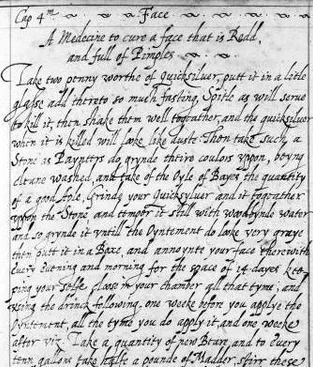 Cap 4m Face
A Medecine to cure a face that is Redd,
and full of Pimples
Take two penny worthe of Quicksilver, putt it in a litle
glasse add thereto so much fasting Spitle as will serve
to kill it, then shake them well togeather, and the quicksilver
when it is killed will looke like duste Then take such a
Stone as Paynters do grynde theire coulors uppon, beyng
cleane washed, and take of the Oyle of Bayes the quantity
of a good spoone, Grinde your Quicksylver and it togeather
uppon the Stone and temper it still with woodbynde water
and so grynde it untill the Oyntement do looke very graye
then putt it in a Boxe, and annoynte your face therewith
Every Evening and morning for the space of 14 dayes kee=
ping your selfe close in your chamber all that tyme, and
using the drinck following, one weeke before you applye the
Oyntement, all the tyme you do apply it and one weeke
after viz. Take a quantity of new Beare, and to Every
tenn gallons take halfe a pounde of Madder, stirr these